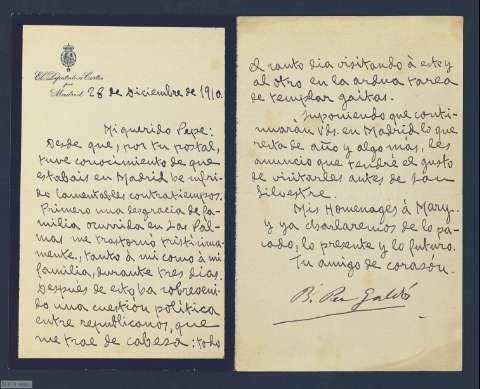 El Diputado á Cortes
por
Madrid
28 de Diciembre de 1910.
Mi querido Pepe:
Desde que, por tu postal,
tuve conocimiento de que
estabais en Madrid he sufri-
do lamentables contratiempos.
Primero una desgracia de fa-
milia ocurrida en Las Pal-
mas me trastornó tristisima-
mente, tanto à mi como à mi
familia, durante tres dias.
Despues de esto ha sobreveni-
do una cuestión política
entre republicanos, que
me trae de cabeza: todo
el santo dia visitando à este y
al otro en la ardua tarea
de templar gaitas.
Suponiendo que conti-
nuarán Vds. en Madrid lo que
resta de año y algo mas, les
anuncio que tendré el gusto
de visitarles antes de San
Silvestre.
Mis Homenages à Mary-
y ya charlaremos de lo pa-
sado, lo presente y lo futuro.
Tu amigo de corazón.
B. Perez Galdós